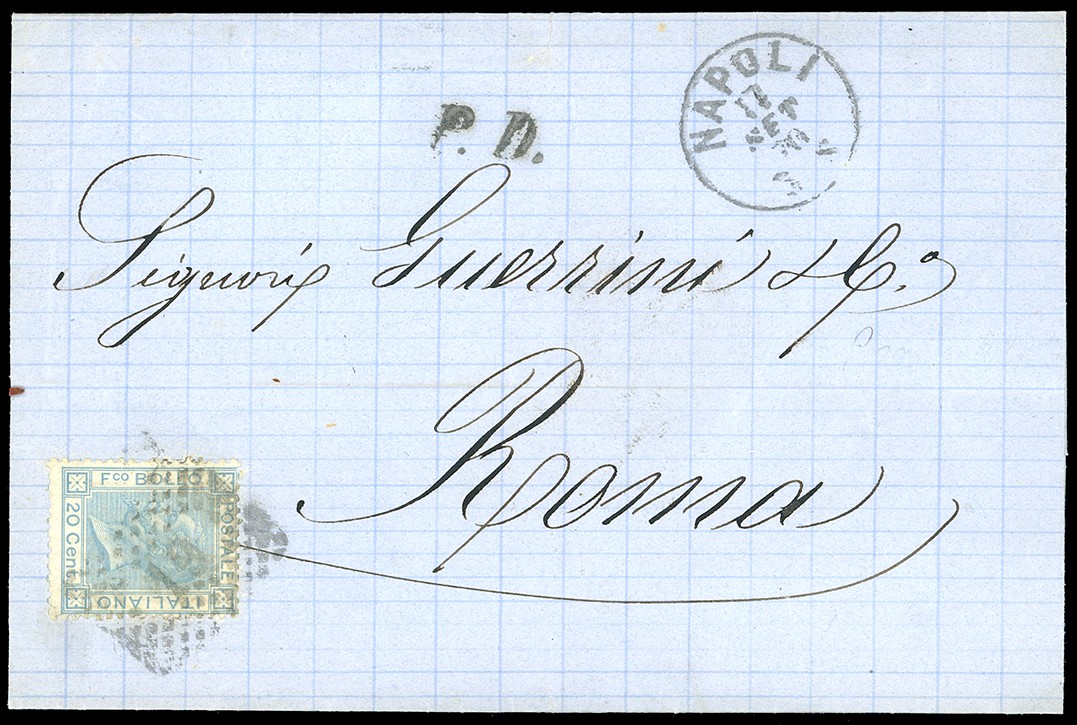 NAPOLI
17
SET
70
P. D.
Signori Guerrini & Co.
Roma
Fco BOLLO
POSTALE
ITALIANO
20 Cent.